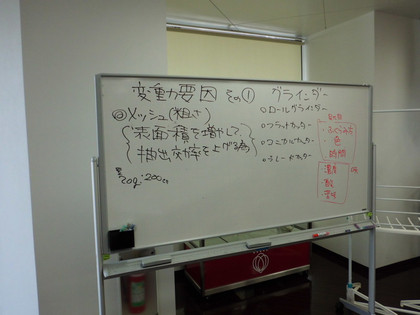 変動要因 その① グラインダー
◎メッシュ(粗さ)
表面積を増やして、
抽出効率を上げる為
20g:200cc
◦ロールグラインダー
◦フラットカッター
◦コニカルカッター
◦ブレードカッター
・ふくらみ方
・色
・時間
・濃度
・酸
・苦味